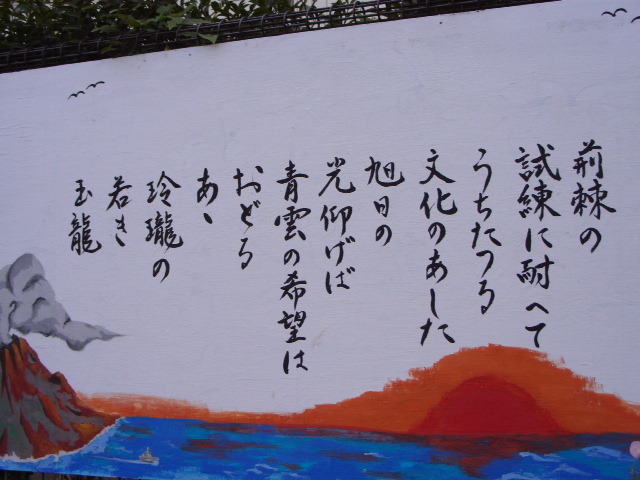 荊棘の
試練に耐へて
うちたつる
文化のあした
旭日の
光仰げば
青雲の希望は
おどる
あゝ
玲瓏の
若き
玉龍